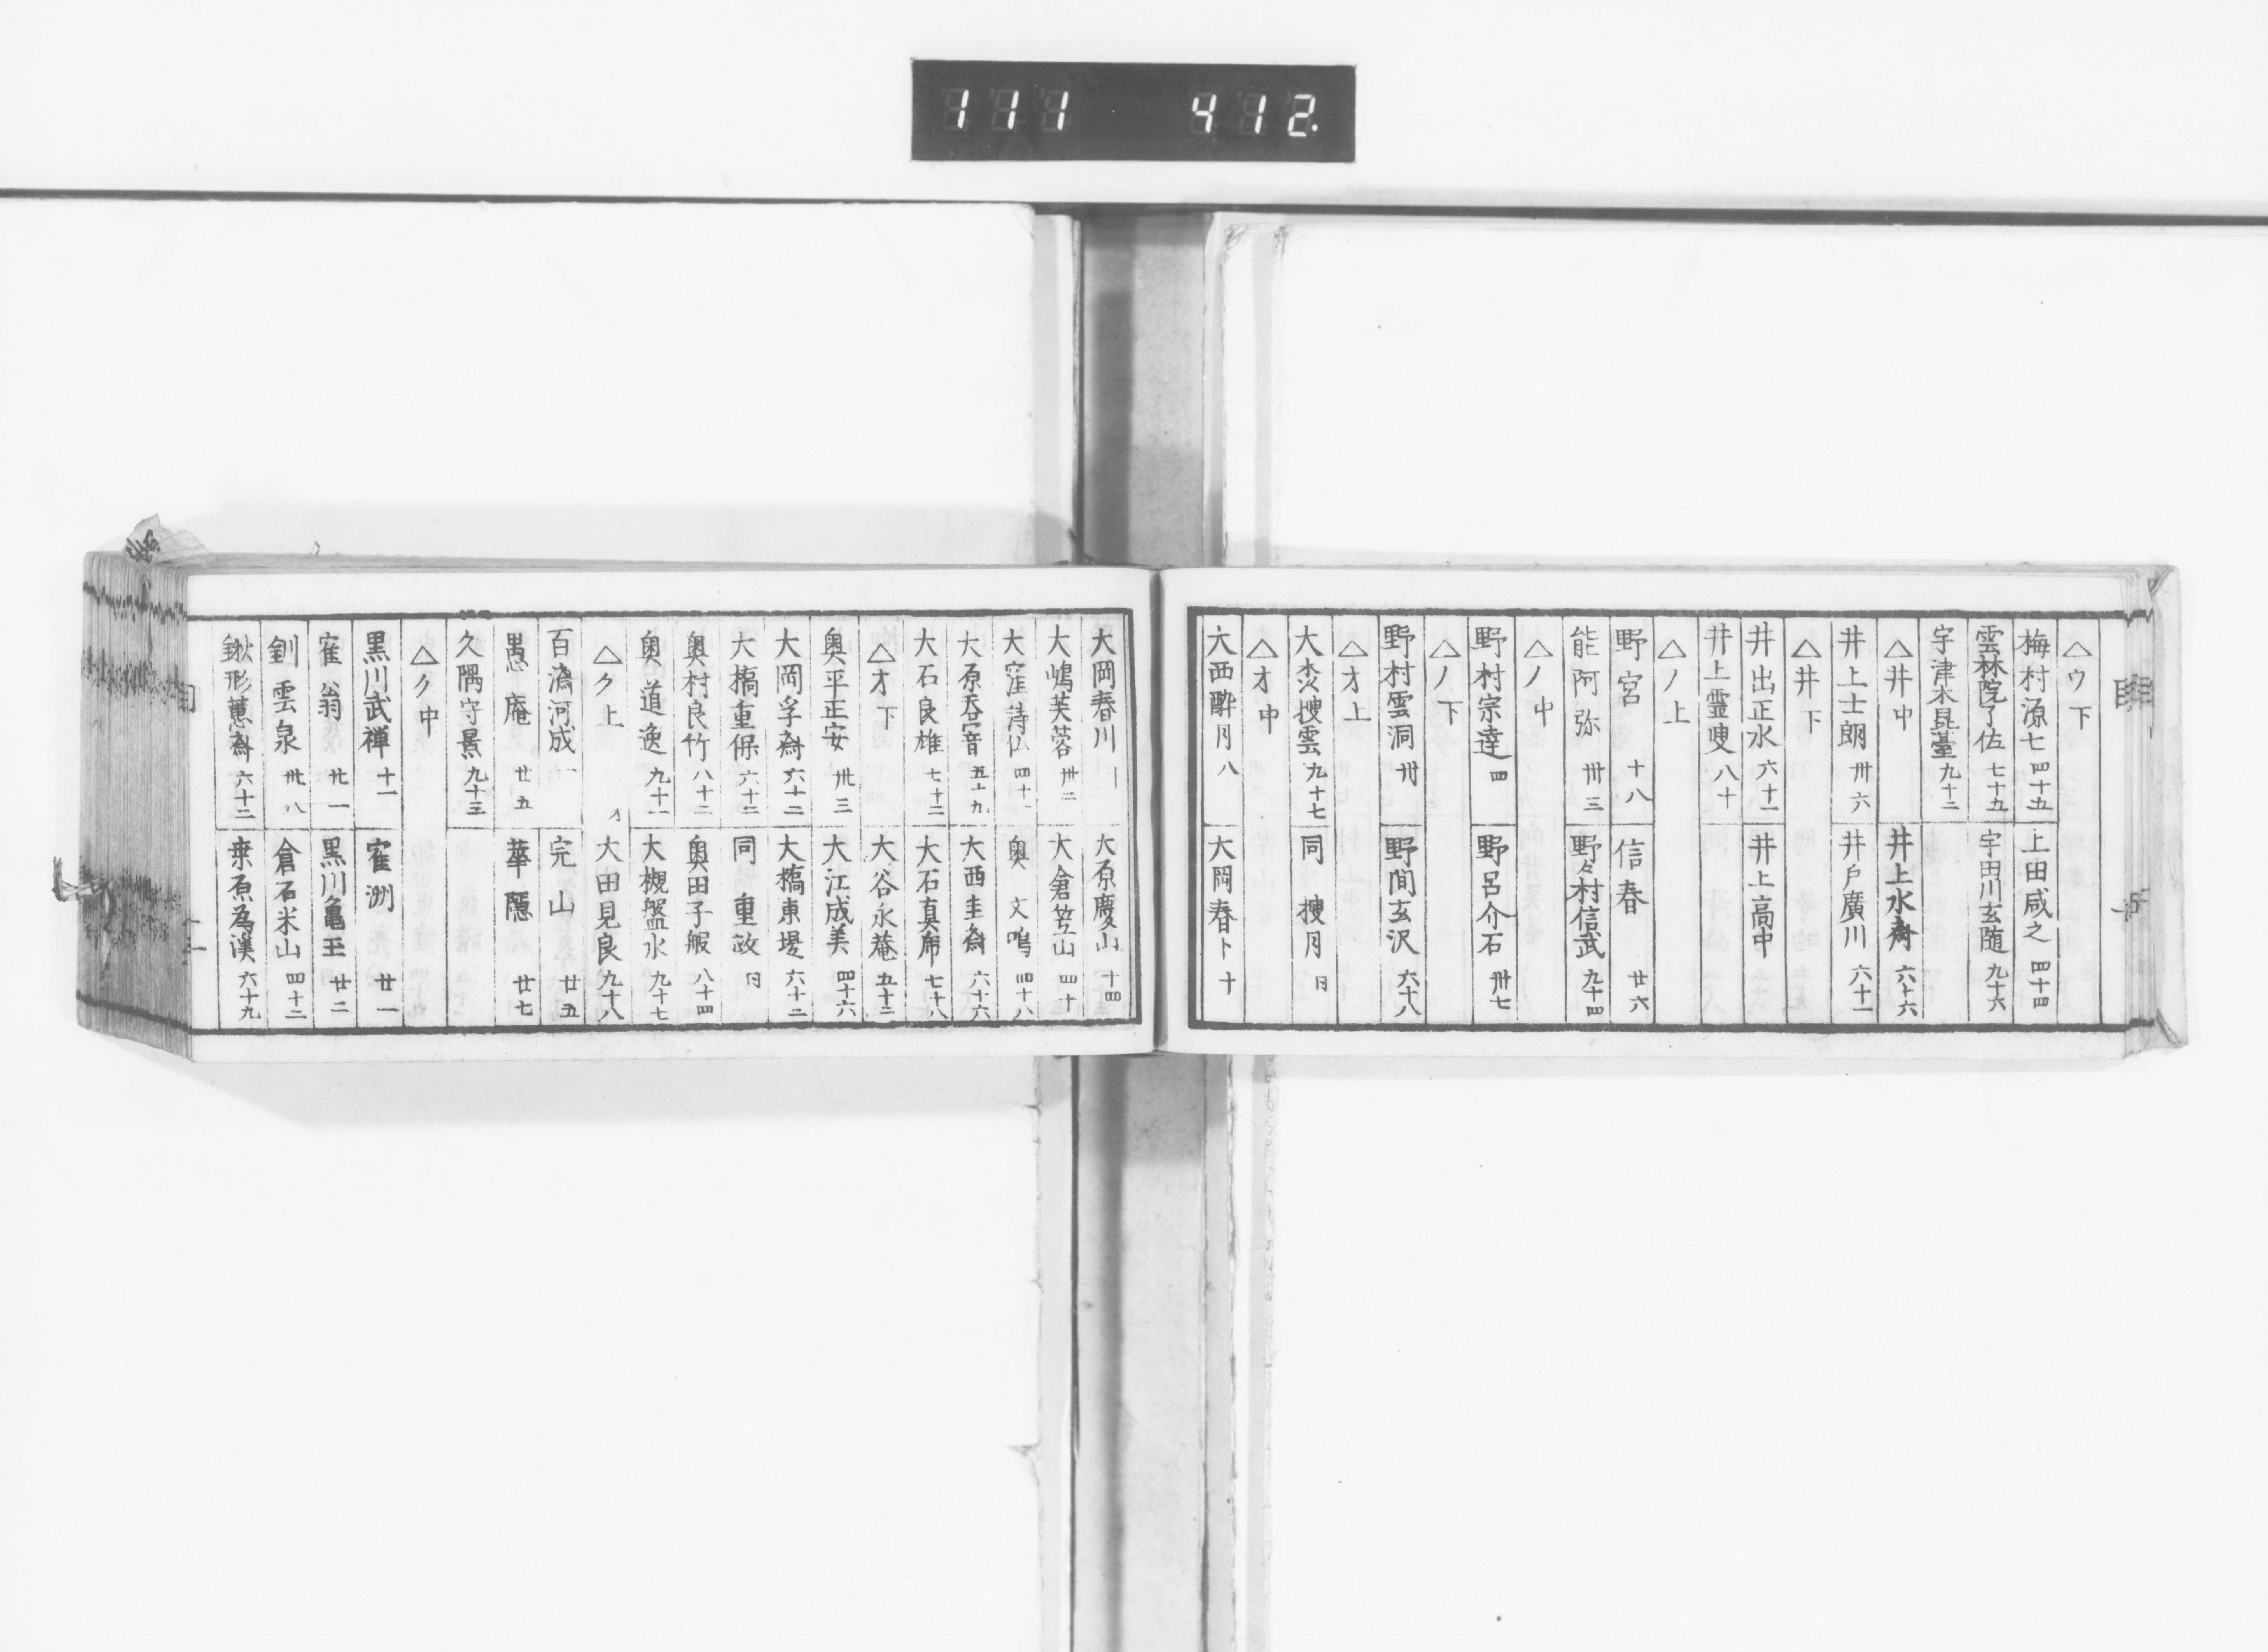 111 412.
△ウ下
梅村源七 四十五 上田咸之 四十四
雲林院了佐 七十五 宇田川玄随 九十六
宇津木昆臺 九十二
△井中 井上水斎 六十六
井上士朗 卅六 井戸廣川 六十一
△井下
井出正水 六十一 井上高中
井上靈叟 八十
△ノ上
野宮 十八 信春 廿六
能阿弥 卅三 野々村信武 九十四
△ノ中
野村宗達 四 野呂介石 卅七
△ノ下
野村雲洞 卅 野間玄沢 六十八
△オ上
大炊捜雲 九十七 同 捜月 同
△オ中
大西酔月 八 大岡春卜 十
大岡春川 大原慶山 十四
大嶋芙蓉 卅二 大倉笠山 四十
大窪詩仏 四十 奥文鳴 四十八
大原呑音 五十九 大西圭斎 六十六
大石良雄 七十二 大石真虎 七十八
△オ下 大谷永菴 五十二
奥平正安 卅三 大江成美 四十六
大岡孚斎 六十二 大橋東堤 六十二
大橋重保 六十二 同 重政 同
奥村良竹 八十二 奥田子服 八十四
奥道逸 九十一 大槻盤水 九十七
△ク上 大田見良 九十八
百済河成 一 完山 廿五
愚庵 廿五 華隠 廿七
久隅守景 九十三
△ク中
黒川武禅 十一 寉洲 廿一
寉翁 廿一 黒川亀玉 廿二
釧雲泉 卅八 倉石米山 四十二
鍬形蕙斎 六十二 桒原為漢 六十九